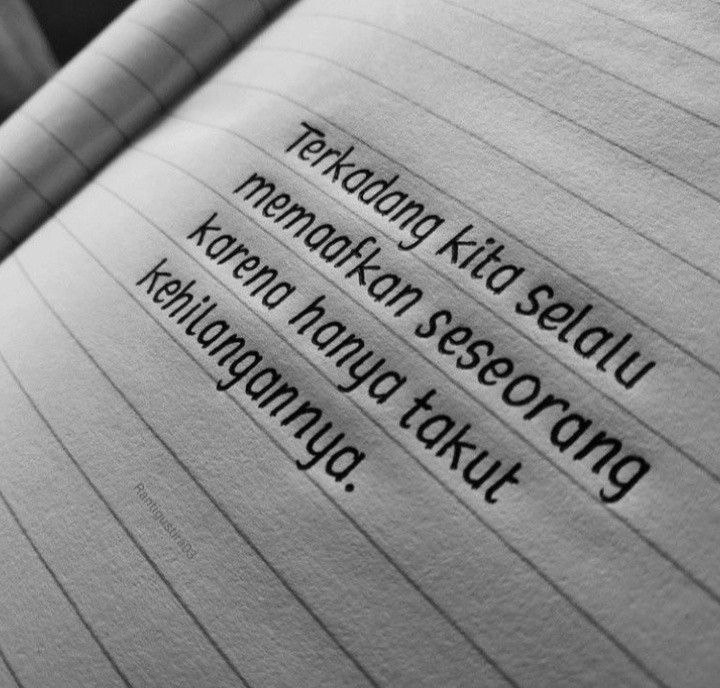 Terkadang kita selalu
memaafkan seseorang
karena hanya takut
kehilangannya.